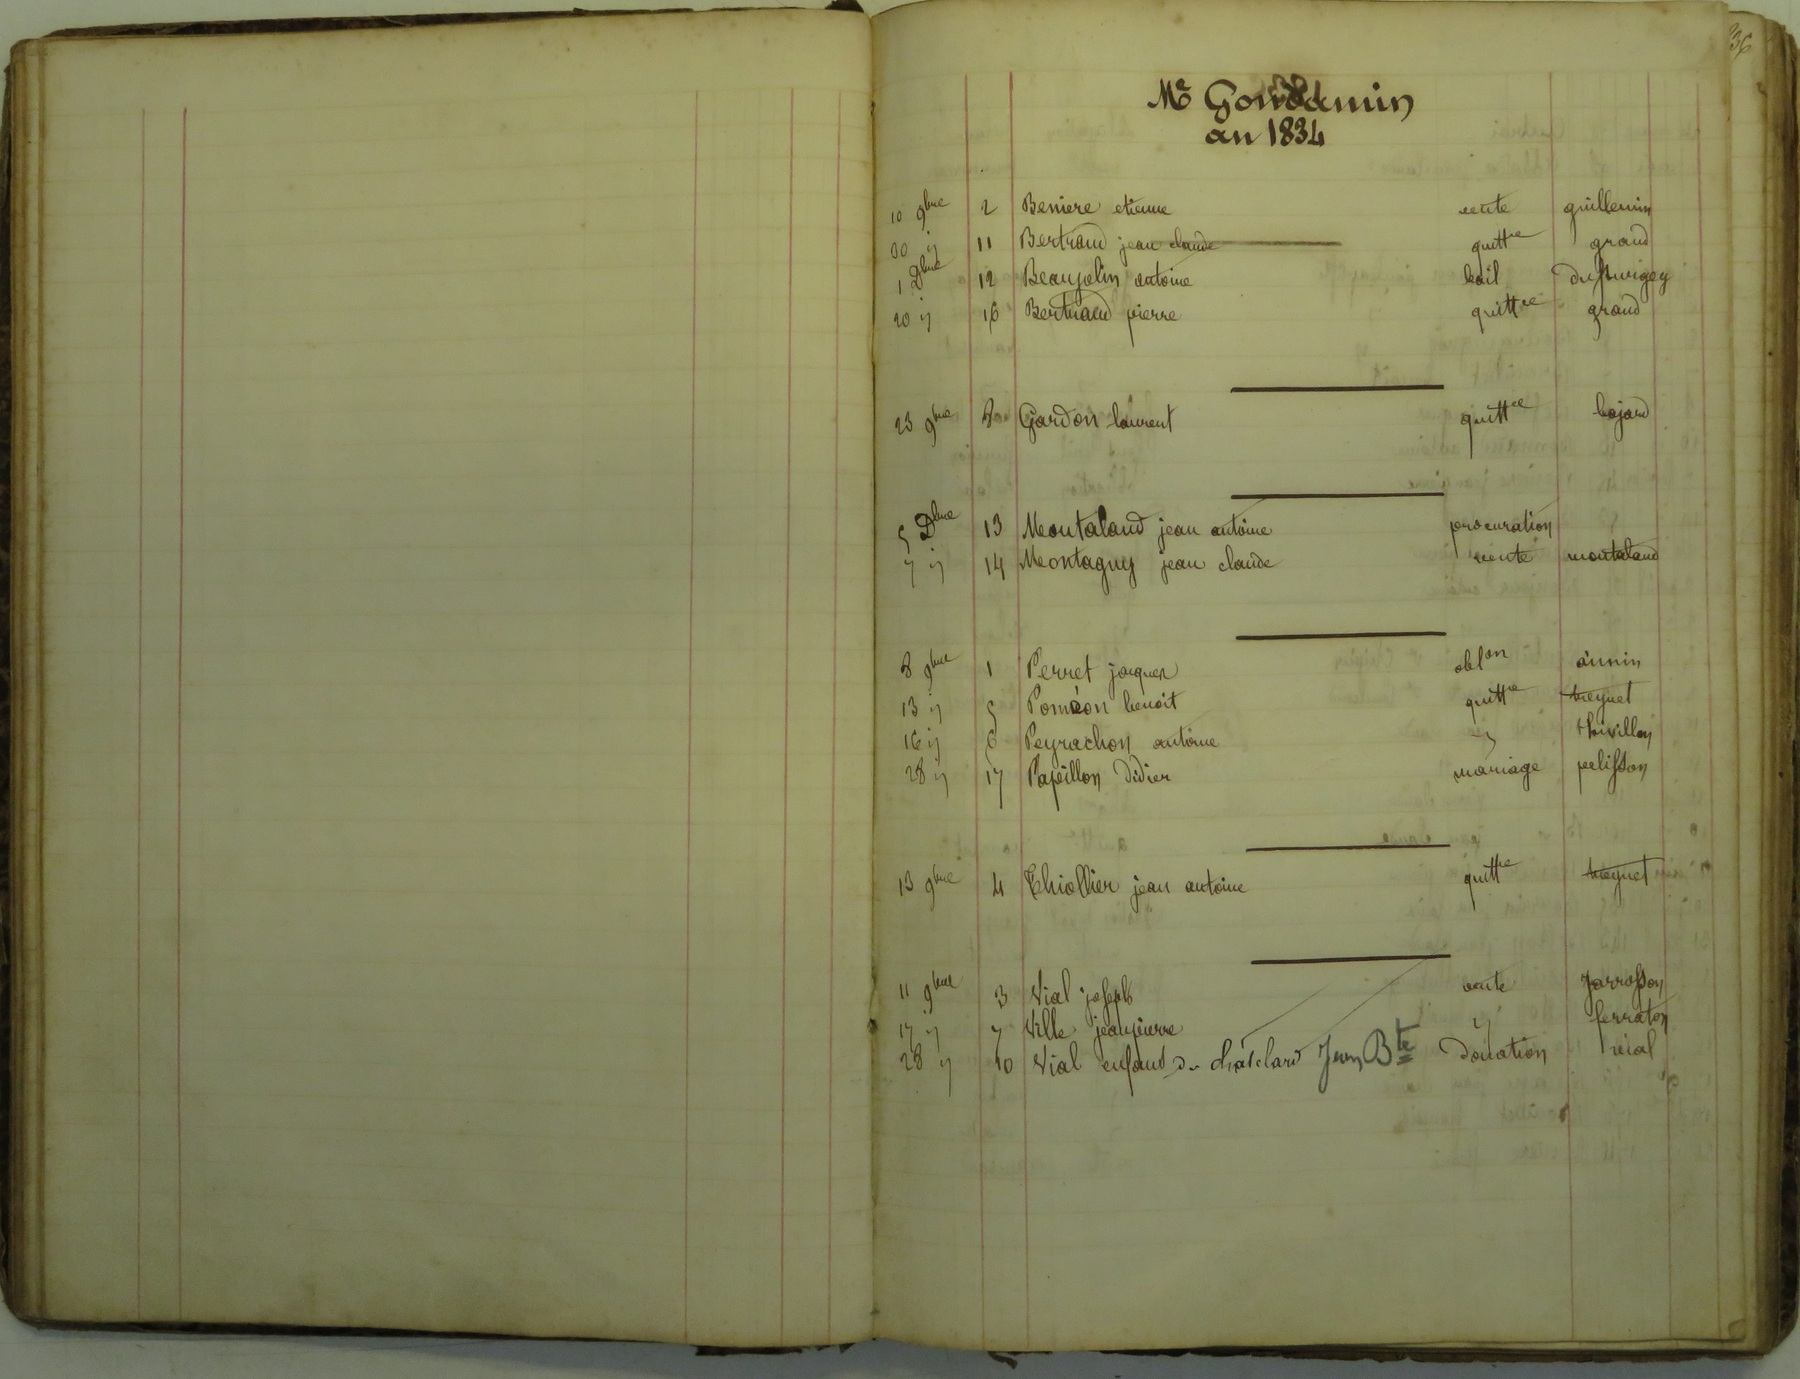 36
Me Gondamin
an 1834
10 9bre 2 Beniere etienne vente guillemin
30 ij 11 Bertrand jean claude quittce grand
1 Dbre 12 Beaujolin antoine bail
20 ij 16 Bertrand pierre quittce grand
23 9bre 8 Gardon laurent quittce bajard
5 Dbre 13 Montaland jean antoine procuration
7 ij 14 Montagny jean claude vente montaland
8 9bre 1 Perret jacques oblon
13 ij 5 Poméon benoit quittce meynet
16 ij 6 Peyrachon antoine ij thivillon
28 ij 17 Papillon Didier mariage pelisson
13 9bre 4 Thiollier jean antoine quittce meynet
11 9bre 3 Vial joseph vente Jarrosson
17 ij 7 Ville jean pierre ij ferraton
28 ij 10 Vial enfant de chatelard Jean Bte Donation réal